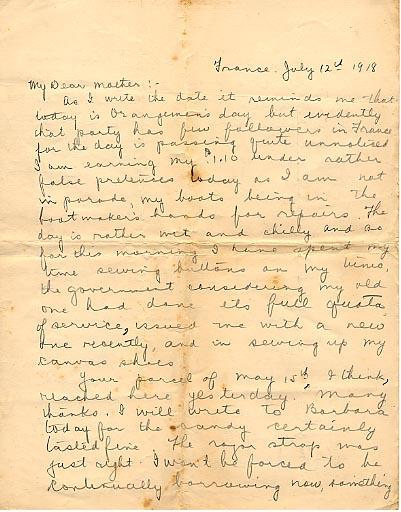 France. July 12th 1918
My Dear Mother :-
As I write the date it reminds me that
today is Orangemens day but evidently
that party has few followers in France
for the day is passing quite unnoticed
I am earning my $1.10 under rather
false pretences today as I am not
on parade, my boots being in the
bootmakers hands for repairs. The
day is rather wet and chilly and so
far this morning I have spent my
time sewing buttons on my
the government considering my old
one had done its full quota
of service, issued me with a new
one recently, and in sewing up my
canvas shoes
Your parcel of May 15th, I think,
reached here yesterday. Many
thanks. I will write to Barbara
today for the candy certainly
tasted fine. The razor strap was
just right. I won't be forced to be
continually borrowing now, something